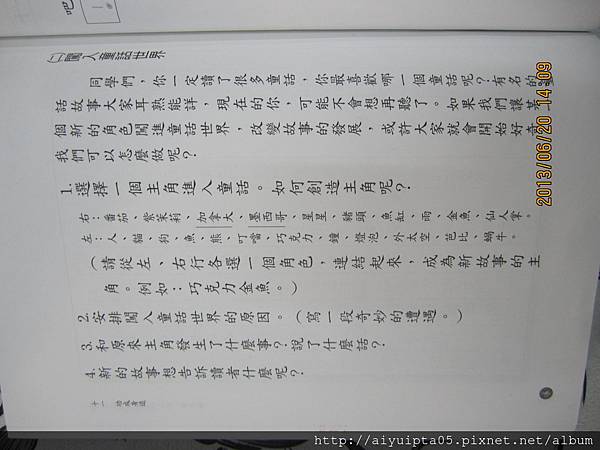 吧
(二)闖入童話世界
同學們,你一定讀了很多童話,你最喜歡哪一個童話呢?有名的
話故事大家耳熟能詳,現在的你,可能不會想再聽了。如果我們讓某
個新的角色闖進童話世界,改變故事的發展,或許大家就會開始好奇
我們可以怎麼做呢?
1.選擇一個主角進入童話。如何創造主角呢?
右:番茄、紫茉莉、加拿大、墨西哥、星星、豬頭、魚缸、雨、金魚、仙人掌。
左:人、貓、狗、魚、熊、叮噹、巧克力、鐘、燈泡、外太空、芭比、蝸牛。
(請從左、右行各選一個角色,連結起來,成為新故事的主
角。例如:巧克力金魚。)
2.安排闖入童話世界的原因。(寫一段奇妙的遭遇。)
3.和原來主角發生了什麼事?說了什麼話?
4.新的故事想告訴讀者什麼呢?
2013/06/20 14:09
http://aiyuipta05.pixnet.net/album